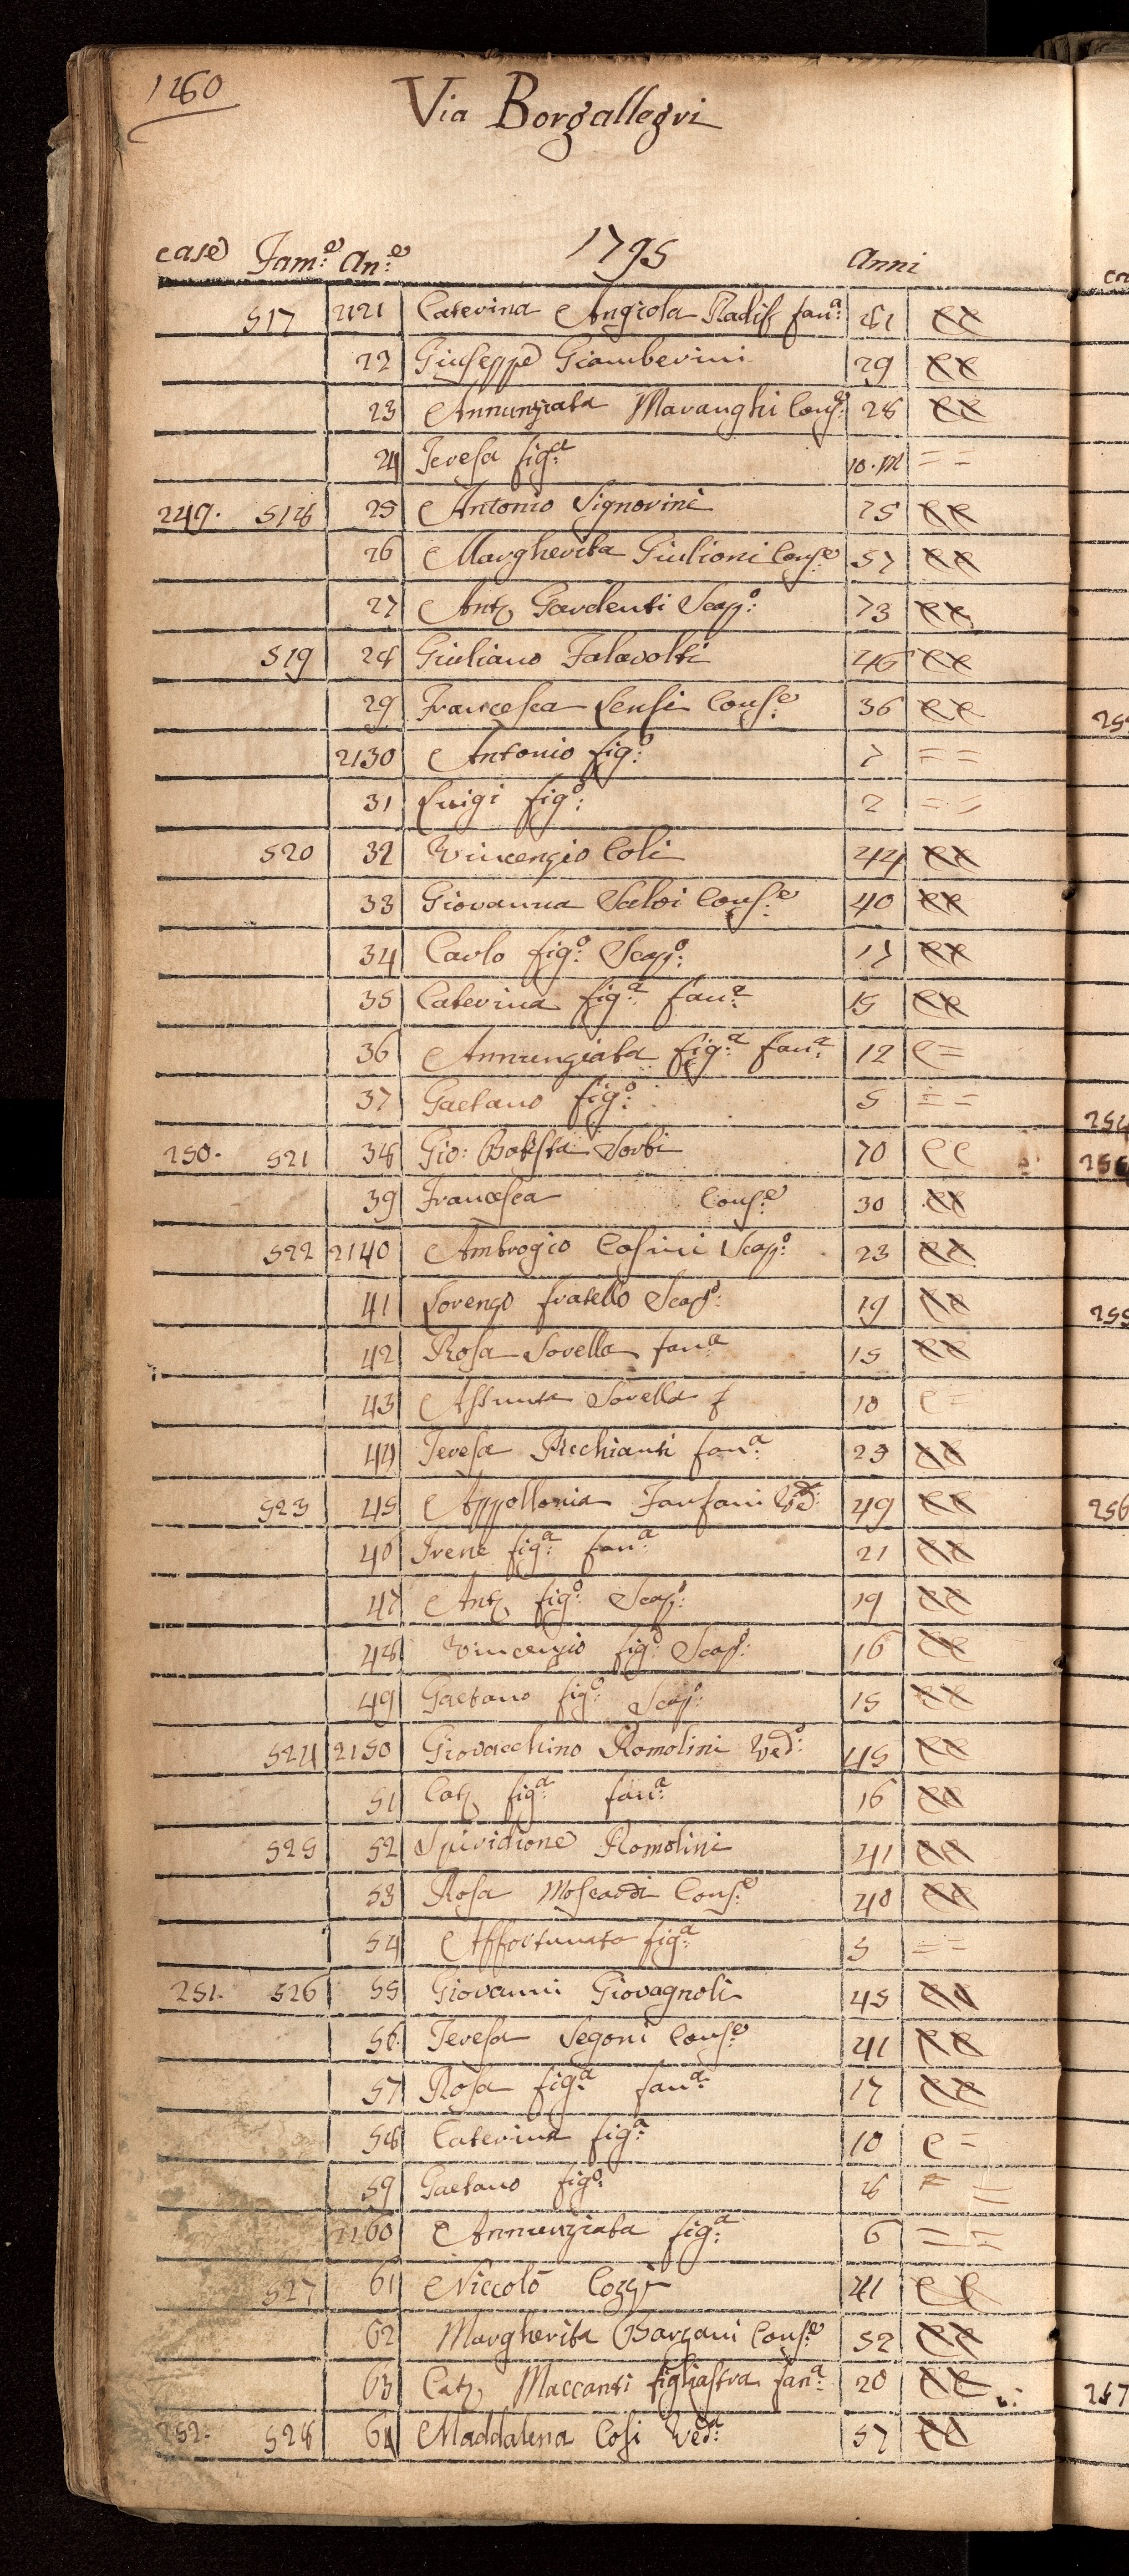 1260
Via Borgallegri
case Fam:e An:e 1795 Anni
517 2121 Caterina Angiola Radif fan:a 81 ee
22 Giuseppe Giamberini 29 ee
23 Annunziata Maranghi Cons:e 28 ee
24 Teresa fig:a 10. m = =
249. 518 25 Antonio Signorini 25 ee
26 Margherita Giulioni Cons:e 57 ee
27 Ant. Gardenti Scap:o 73 ee
519 28 Giuliano Falavolti 46 ee
29 Francesca Sensi Cons:e 36 ee
2130 Antonio fig:o 7 = =
31 Luigi fig:o 2 = =
520 32 Vincenzio Coli 44 ee
33 Giovanna Salvi Cons:e 40 ee
34 Carlo fig:o Scap:o 17 ee
35 Caterina fig:a fan:a 15 ee
36 Annunziata fig:a fan:a 12 e =
37 Gaetano fig:o 5 = =
250. 521 38 Gio: Batista Sorbi 70 ee
39 Francesca Cons:e 30 ee
522 2140 Ambrogio Cosini Scap:o 23 ee
41 Lorenzo fratello Scap:o 19 ee
42 Rosa Sorella fan:a 15 ee
43 Assunta Sorella f 10 e =
44 Teresa Picchianti fan:a 23 ee
523 45 Appollonia Fanfani Ved:a 49 ee
46 Irene fig:a fan:a 21 ee
47 Ant. fig:o Scap:o 19 ee
48 Vincenzio fig:o Scap:o 16 ee
49 Gaetano fig:o Scap:o 15 ee
524 2150 Giovacchino Romolini Ved:o 45 ee
51 Cat. fig:a fan:a 16 ee
525 52 Spiridione Romolini 41 ee
53 Rosa Moscardi Cons:e 40 ee
54 Affortunata fig:a 5 = =
251. 526 55 Giovanni Giovagnoli 45 ee
56 Teresa Segoni Cons:e 41 ee
57 Rosa fig:a fan:a 17 ee
58 Caterina fig:a 10 e =
59 Gaetano fig:o 8 = =
2160 Annunziata fig:a 6 = =
527 61 Niccolò Cozzi 41 ee
62 Margherita Barzani Cons:e 52 ee
63 Cat. Maccanti figliastra fan:a 20 ee
252. 528 64 Maddalena Cosi Ved:a 57 ee